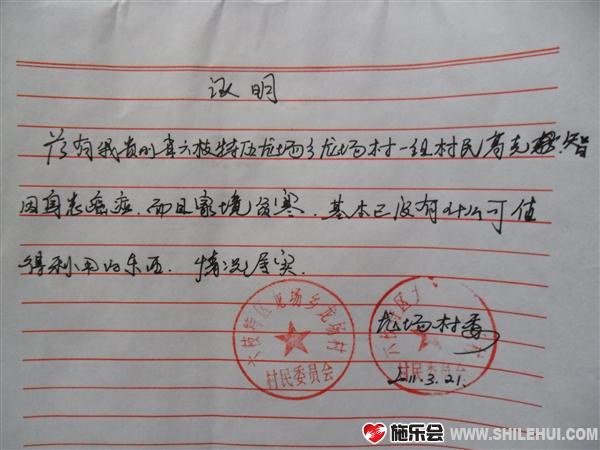 证明
兹有我贵州省六枝特区龙场乡龙场村一组村民高克智
因身患癌症.而且家境贫寒.基本已没有什么可值
得利用的东西.情况属实.
六枝特区龙场乡龙场村
村民委员会
龙场村委
六枝特区
村民委员会
2011.3.21.
施乐会 WWW.SHILEHUI.COM